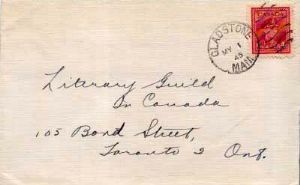 GLADSTONE
MY 1
45
MAN.
Literary Guild
in Canada
105 Bond Street,
Toronto 2 Ont.